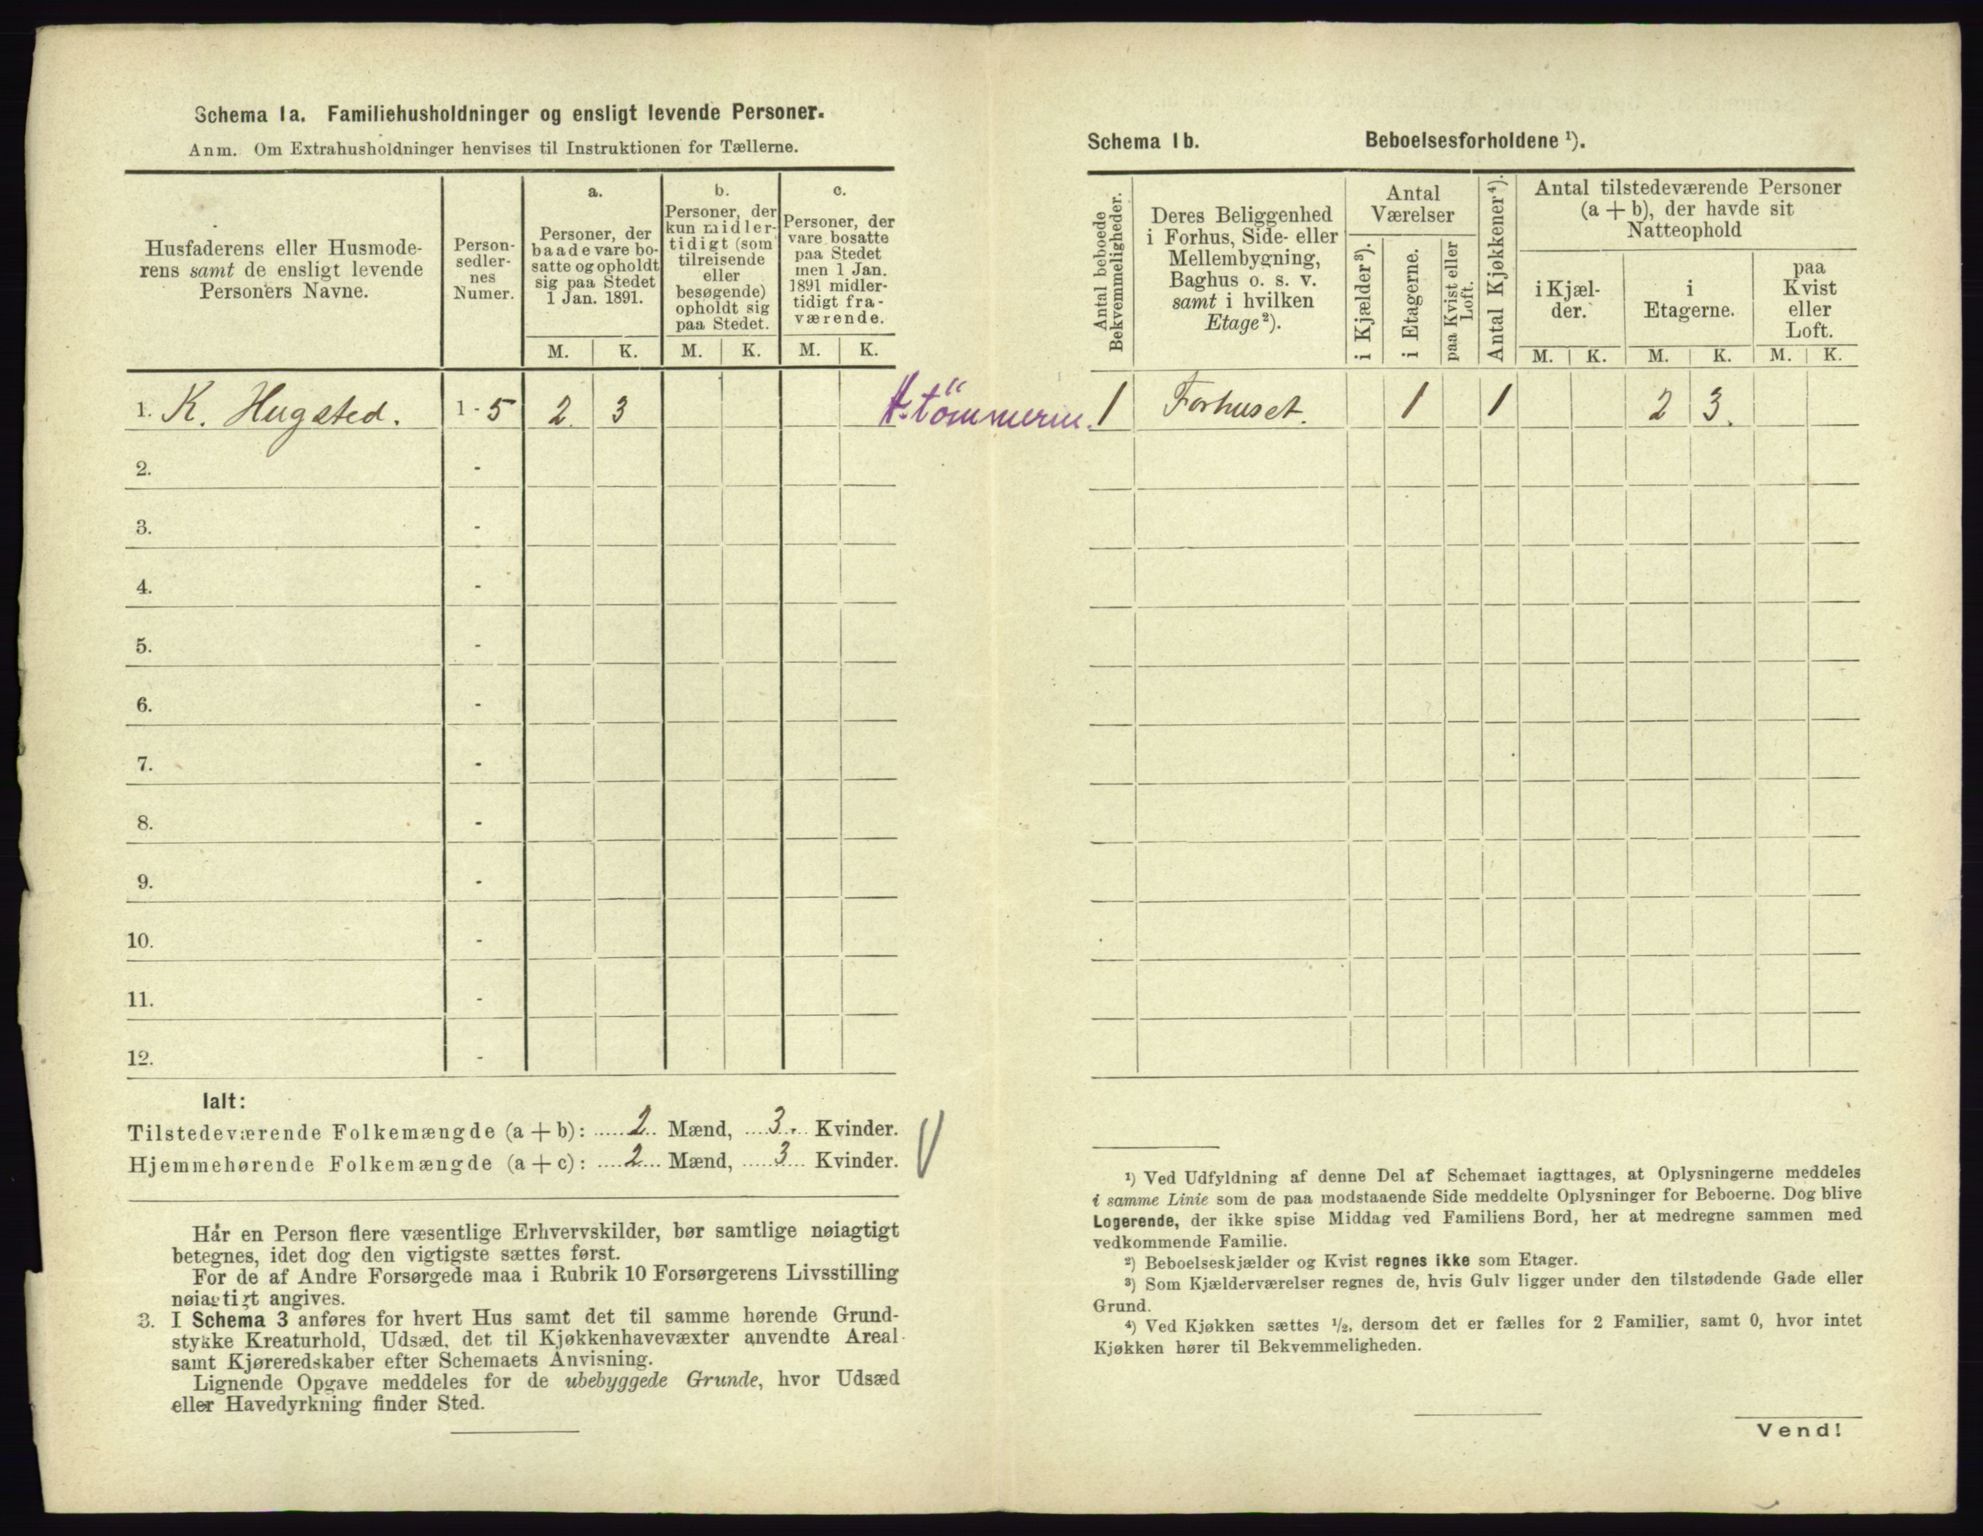 Schema 1a. Familiehusholdninger og ensligt levende Personer.
Anm. Om Extrahusholdninger henvises til Instruktionen for Tællerne.
Husfaderens eller Husmode-
rens samt de ensligt levende
Personers Navne.
Person-
sedler-
nes
Numer.
a.
Personer, der
baade vare bo-
satte og opholdt
sig paa Stedet
1 Jan. 1891.
b.
Personer, der
kun midler-
tidigt (som
tilreisende
eller
besøgende)
opholdt sig
paa Stedet.
c.
Personer, der
vare bosatte
paa Stedet
men 1 Jan.
1891 midler-
tidigt fra-
værende.
M. K. M. K. M. K.
1. K. Hugsted. 1-5 2 3
2. -
3. -
4. -
5. -
6. -
7. -
8. -
9. -
10. -
11. -
12. -
Ialt:
Tilstedeværende Folkemængde (a+b): 2 Mænd, 3 Kvinder.
Hjemmehørende Folkemængde (a+c): 2 Mænd, 3 Kvinder.
Har en Person flere væsentlige Erhvervskilder, bør samtlige nøiagtigt
betegnes, idet dog den vigtigste sættes først.
For de af Andre Forsørgede maa i Rubrik 10 Forsørgerens Livsstilling
nøiagtigt angives.
3. I Schema 3 anføres for hvert Hus samt det til samme hørende Grund-
stykke Kreaturhold, Udsæd, det til Kjøkkenhavevæxter anvendte Areal
samt Kjøreredskaber efter Schemaets Anvisning.
Lignende Opgave meddeles for de ubebyggede Grunde, hvor Udsæd
eller Havedyrkning finder Sted.
Schema 1b. Beboelsesforholdene ¹).
Antal beboede
Bekvemmeligheder.
Deres Beliggenhed
i Forhus, Side- eller
Mellembygning,
Baghus o. s. v.
samt i hvilken
Etage²).
Antal
Værelser
i Kjælder³).
i Etagerne.
paa Kvist eller
Loft.
Antal Kjøkkener⁴).
Antal tilstedeværende Personer
(a+b), der havde sit
Natteophold
i Kjæl-
der.
i
Etagerne.
paa
Kvist
eller
Loft.
M. K. M. K. M. K.
tömmerm. 1 Forhuset. 1 1 2 3.
¹) Ved Udfyldning af denne Del af Schemaet iagttages, at Oplysningerne meddeles
i samme Linie som de paa modstaaende Side meddelte Oplysninger for Beboerne. Dog blive
Logerende, der ikke spise Middag ved Familiens Bord, her at medregne sammen med
vedkommende Familie.
²) Beboelseskjælder og Kvist regnes ikke som Etager.
³) Som Kjælderværelser regnes de, hvis Gulv ligger under den tilstødende Gade eller
Grund.
⁴) Ved Kjøkken sættes ½, dersom det er fælles for 2 Familier, samt 0, hvor intet
Kjøkken hører til Bekvemmeligheden.
Vend!